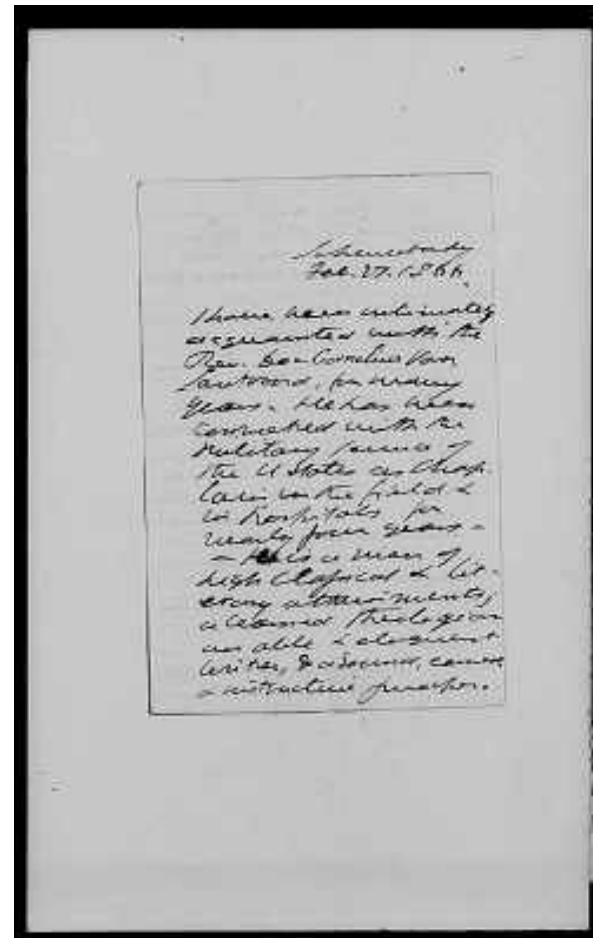 Schenectady
Feb. 27. 1866.
I have been intimately
acquainted with the
Rev. Doc Cornelius Van
Santvoord, for many
years. He has been
connected with the
Military service of
the U States as Chap-
lain in the field &
in hospitals for
nearly four years -
- He is a man of
high Classical & lit-
erary attainments,
a learned theologian
an able & eloquent
writer, & a sound,
& instructive preacher.